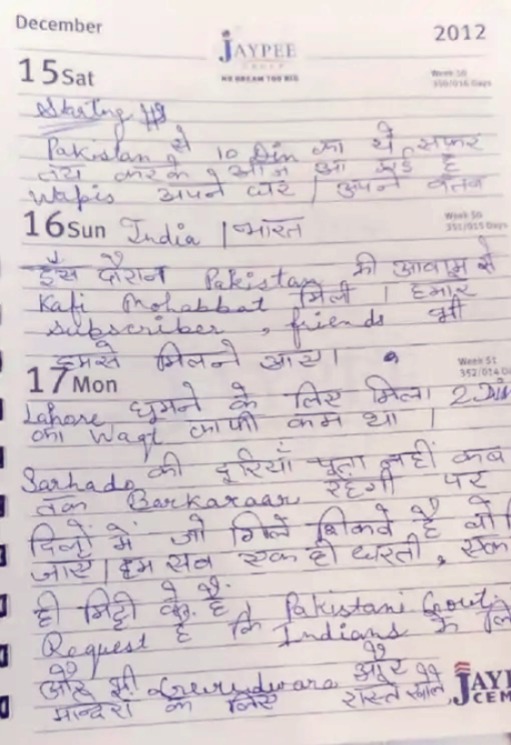 December
2012
JAYPEE
GROUP
WE DREAM TOO BIG
15 Sat
Week 50
350/016 Days
Pakistan से 10 Din का ये सफर
तय करके आज आ गई है
Wapis अपने घर | अपने वतन
16 Sun India | भारत
Week 50
351/015 Days
इस दौरान Pakistan की आवाम से
Kafi Mohabbat मिली | हमारे
subscriber, friends भी
हमसे मिलने आए |
17 Mon
Week 51
352/014 Da
Lahore घूमने के लिए मिला 2 Din
का Waqt काफी कम था |
Sarhado की दूरियाँ पता नहीं कब
तक Barkaraar रहेंगी पर
दिलों में जो गिले शिकवे है वो
जाएं | हम सब एक ही धरती, एक
ही मिट्टी के हैं
Pakistani Govt.
Request है कि Indians के लि
और भी Gurudwara और
मन्दिरों के लिए रास्ते खोले
JAYP
CEM